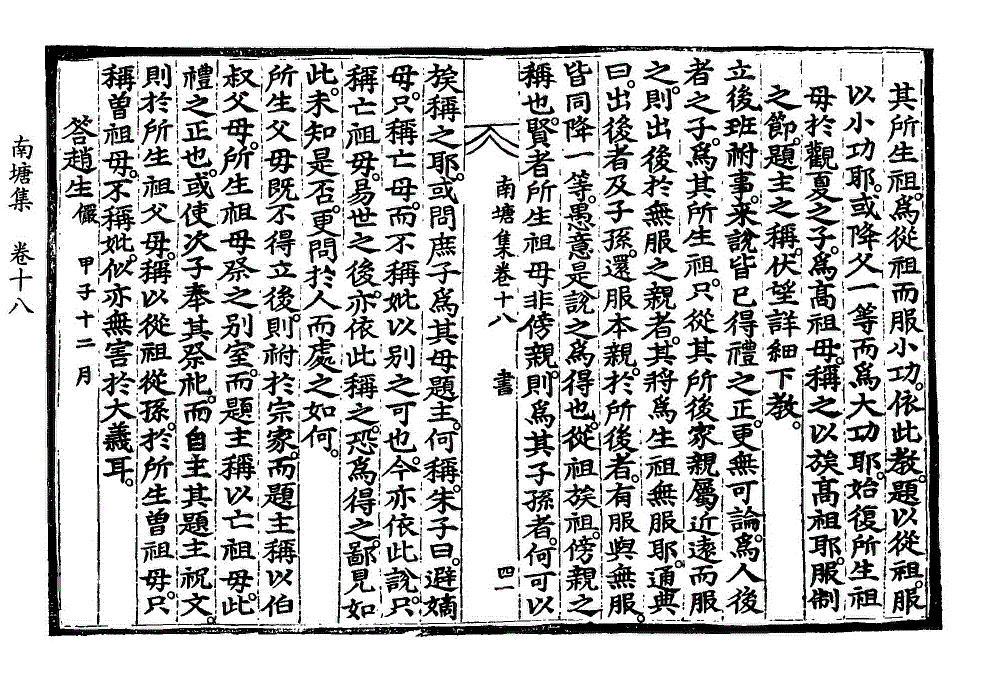 其所生祖。爲從祖而服小功。依此敎。題以從祖。服
以小功耶。或降父一等而爲大功耶。始復所生祖
母於觀夏之子。爲高祖母。稱之以族高祖耶。服制
之節。題主之稱。伏望詳細下敎。
立後班祔事。來說皆已得禮之正。更無可論。爲人後
者之子。爲其所生祖。只從其所後家親屬近遠而服
之。則出後於無服之親者。其將爲生祖無服耶。通典
曰。出後者及子孫。還服本親。於所後者。有服與無服。
皆同降一等。愚意是說之爲得也。從祖族祖。傍親之
稱也。賢者所生祖母非傍親。則爲其子孫者。何可以
南塘集卷十八 書 四一
族稱之耶。或問庶子爲其母題主。何稱。朱子曰。避嫡
母。只稱亡母。而不稱妣以別之可也。今亦依此說。只
稱亡祖母。易世之後。亦依此稱之。恐爲得之。鄙見如
此。未知是否。更問於人而處之如何。
所生父母旣不得立後。則祔於宗家。而題主稱以伯
叔父母。所生祖母祭之別室。而題主稱以亡祖母。此
禮之正也。或使次子奉其祭祀。而自主其題主祝文。
則於所生祖父母。稱以從祖從孫。於所生曾祖母。只
稱曾祖母。不稱妣。似亦無害於大義耳。
答趙生儼 甲子十二月
南塘集 卷十八